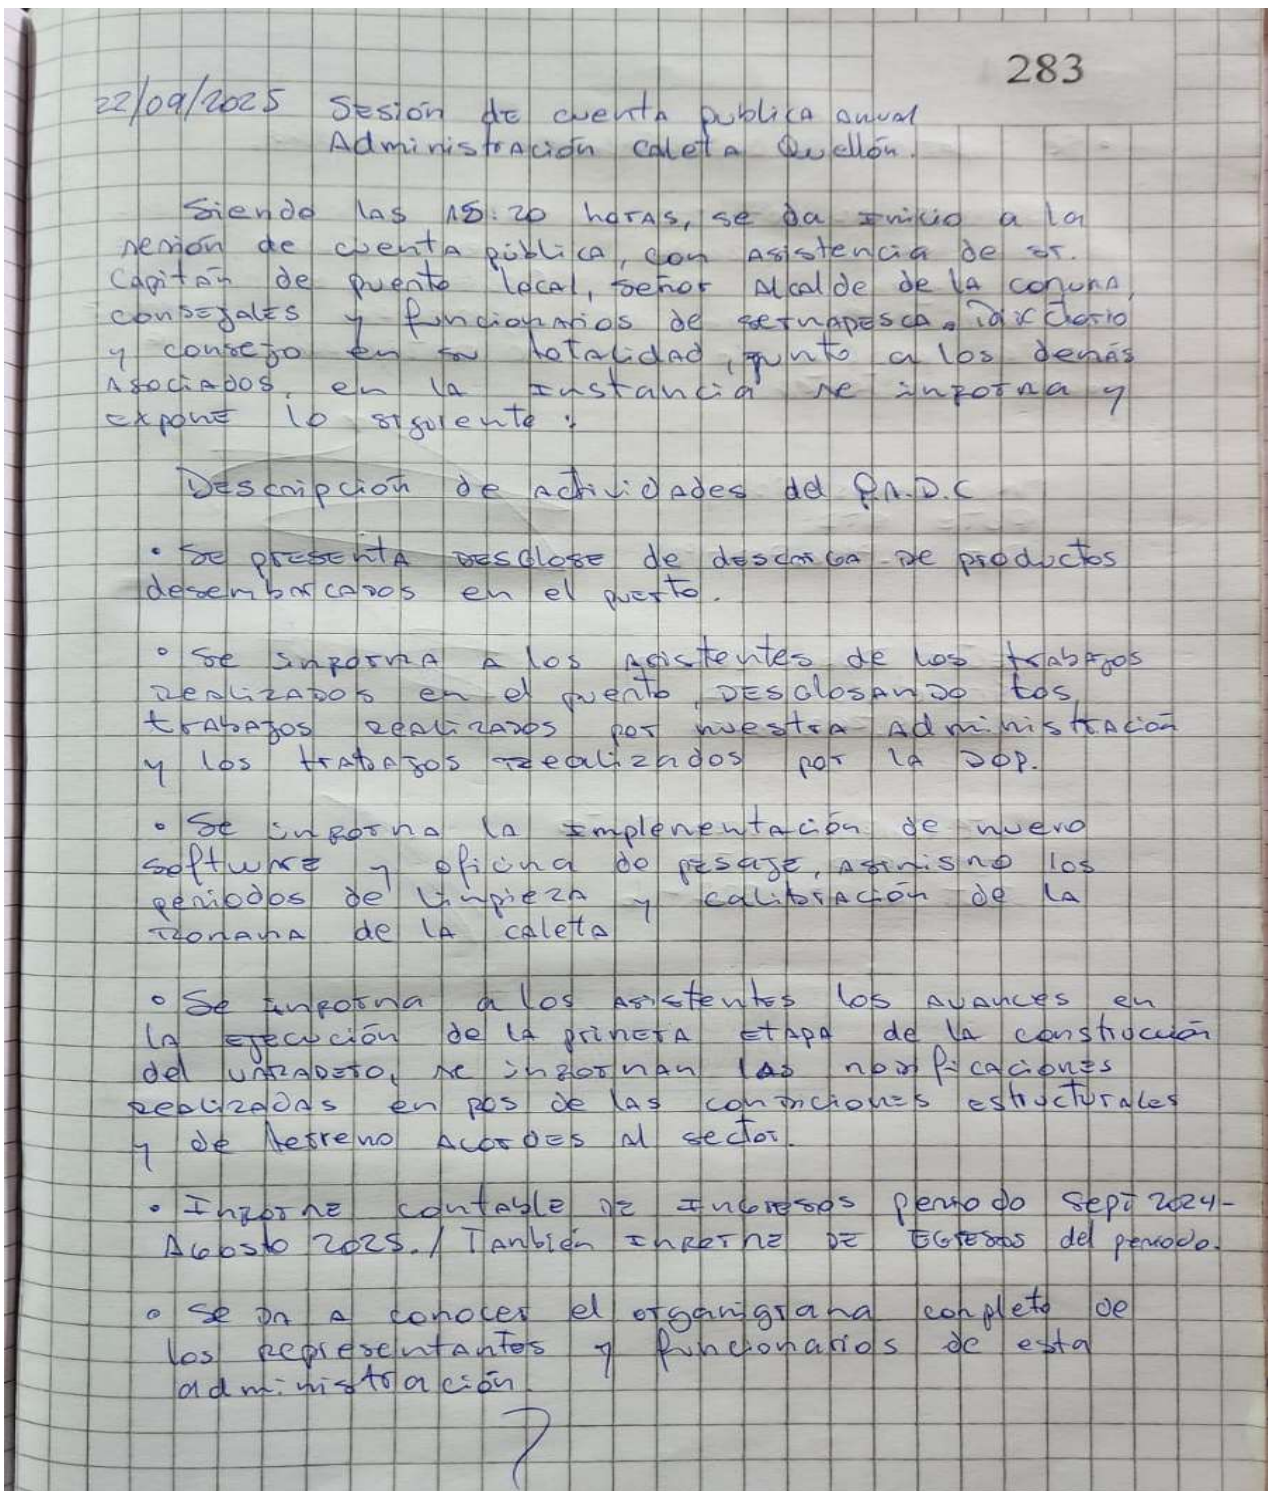 283
22/09/2025 Sesión de cuenta publica anual
Administración caleta Quellón.
Siendo las 15:20 horas, se da inicio a la
sesión de cuenta pública, con asistencia de sr.
Capitán de puerto local, señor Alcalde de la comuna,
consejales y funcionarios de sernapesca. Directorio
y consejo en su totalidad, junto a los demás
Asociados, en la instancia se informa y
expone lo siguiente:
Descripción de actividades del P.A.D.C
• Se presenta desglose de descarga de productos
desembarcados en el puerto.
• Se informa a los asistentes de los trabajos
realizados en el puerto, desglosando los
trabajos realizados por nuestra administración
y los trabajos realizados por la DOP.
• Se informa la implementación de nuevo
software y oficina de pesaje, asimismo los
periodos de limpieza y calibración de la
romana de la caleta
• Se informa a los asistentes los avances en
la ejecución de la primera etapa de la construcción
del varadero, se informan las modificaciones
realizadas en pos de las condiciones estructurales
y de terreno acordes al sector.
• Informe contable de ingresos periodo sept 2024-
Agosto 2025. / También informe de egresos del periodo.
• Se da a conocer el organigrama completo de
los representantes y funcionarios de esta
administración